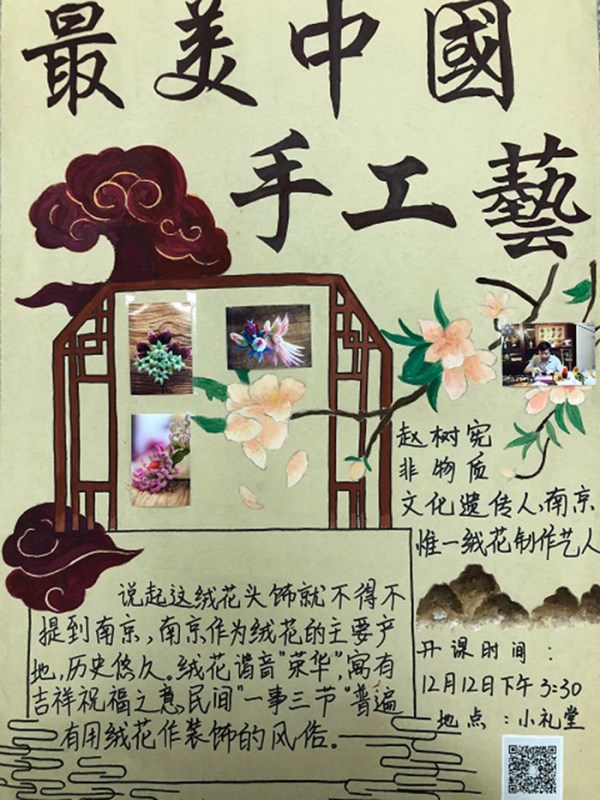 最美中國
手工藝
赵树宪
非物质
文化遗传人、南京
惟一绒花制作艺人
说起这绒花头饰就不得不
提到南京，南京作为绒花的主要产
地，历史悠久。绒花谐音"荣华"，寓有
吉祥祝福之意民间"一事三节"普遍
有用绒花作装饰的风俗。
开课时间：
12月12日下午3:30
地点：小礼堂